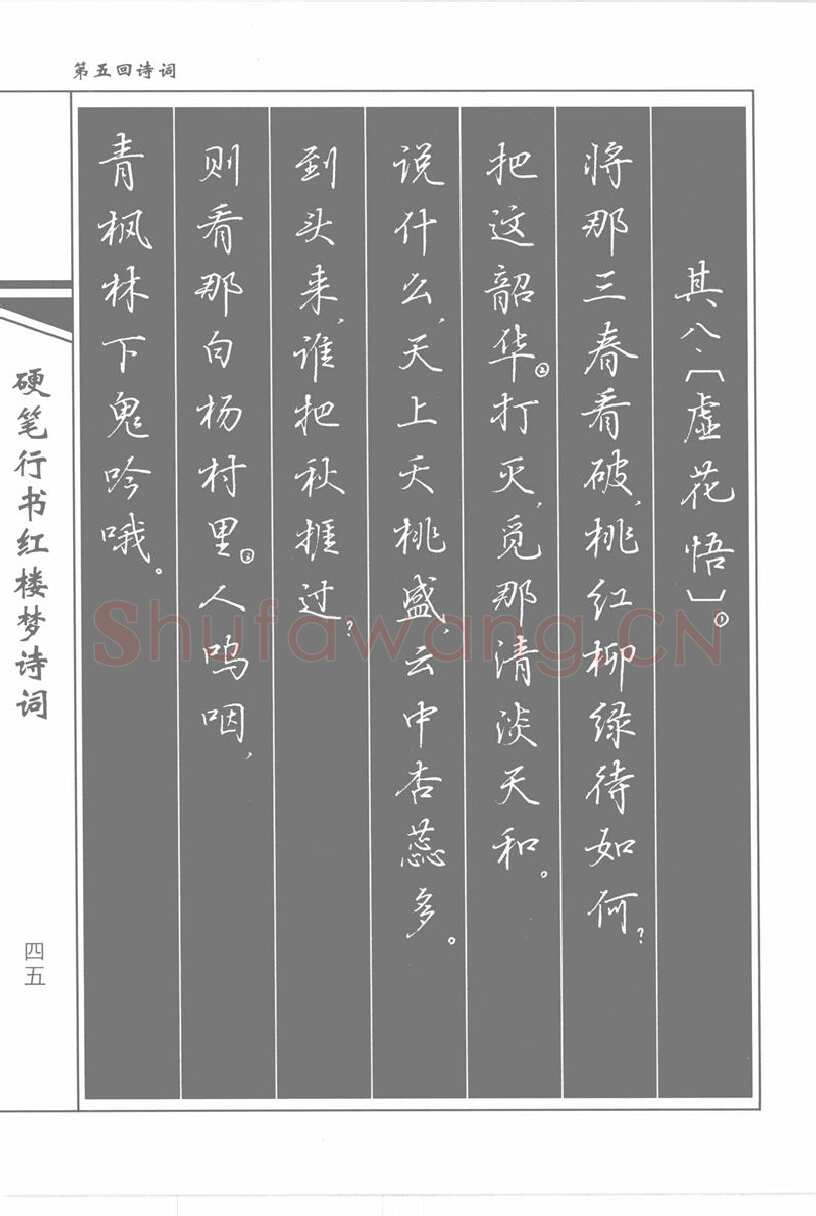 第五回诗词
其八、〔虚花悟〕①
将那三春看破,桃红柳绿待如何?
把这韶华②打灭,觅那清淡天和。
说什么,天上夭桃盛,云中杏蕊多。
到头来,谁把秋捱过?
则看那白杨村里③人呜咽,
青枫林下鬼吟哦。
硬笔行书红楼梦诗词
四五
Shufawang.CN